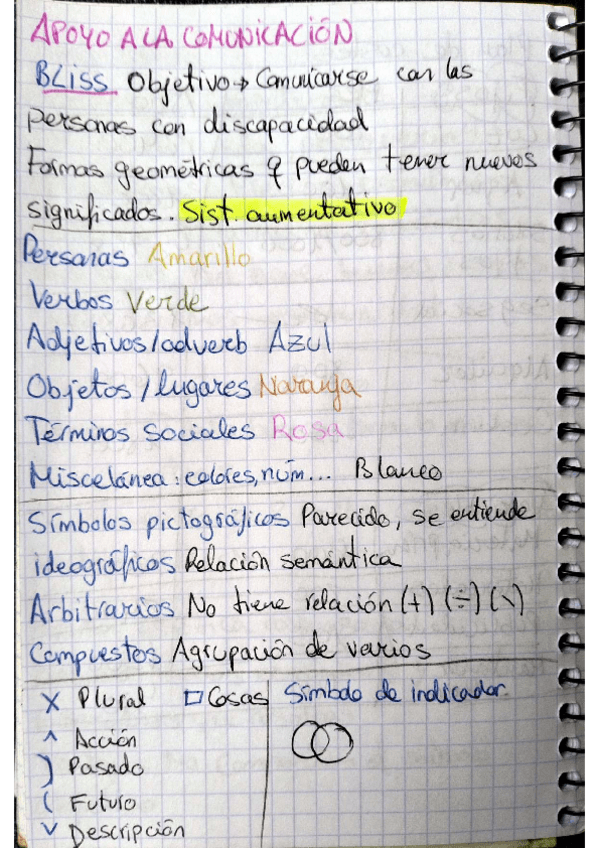 APOYO A LA COMUNICACIÓN
BLISS Objetivo → Comunicarse con las
personas con discapacidad
Formas geométricas q pueden tener nuevos
significados. Sist. aumentativo
Personas Amarillo
Verbos Verde
Adjetivos/adverb Azul
Objetos / lugares Naranja
Términos sociales Rosa
Miscelánea: colores, núm... Blanco
Símbolos pictográficos Parecido, se entiende
ideográficos Relación semántica
Arbitrarios No tiene relación (+) (÷) (\)
Compuestos Agrupación de varios
x Plural □ Cosas
^ Acción
) Pasado
( Futuro
v Descripción
Símbolo de indicador.